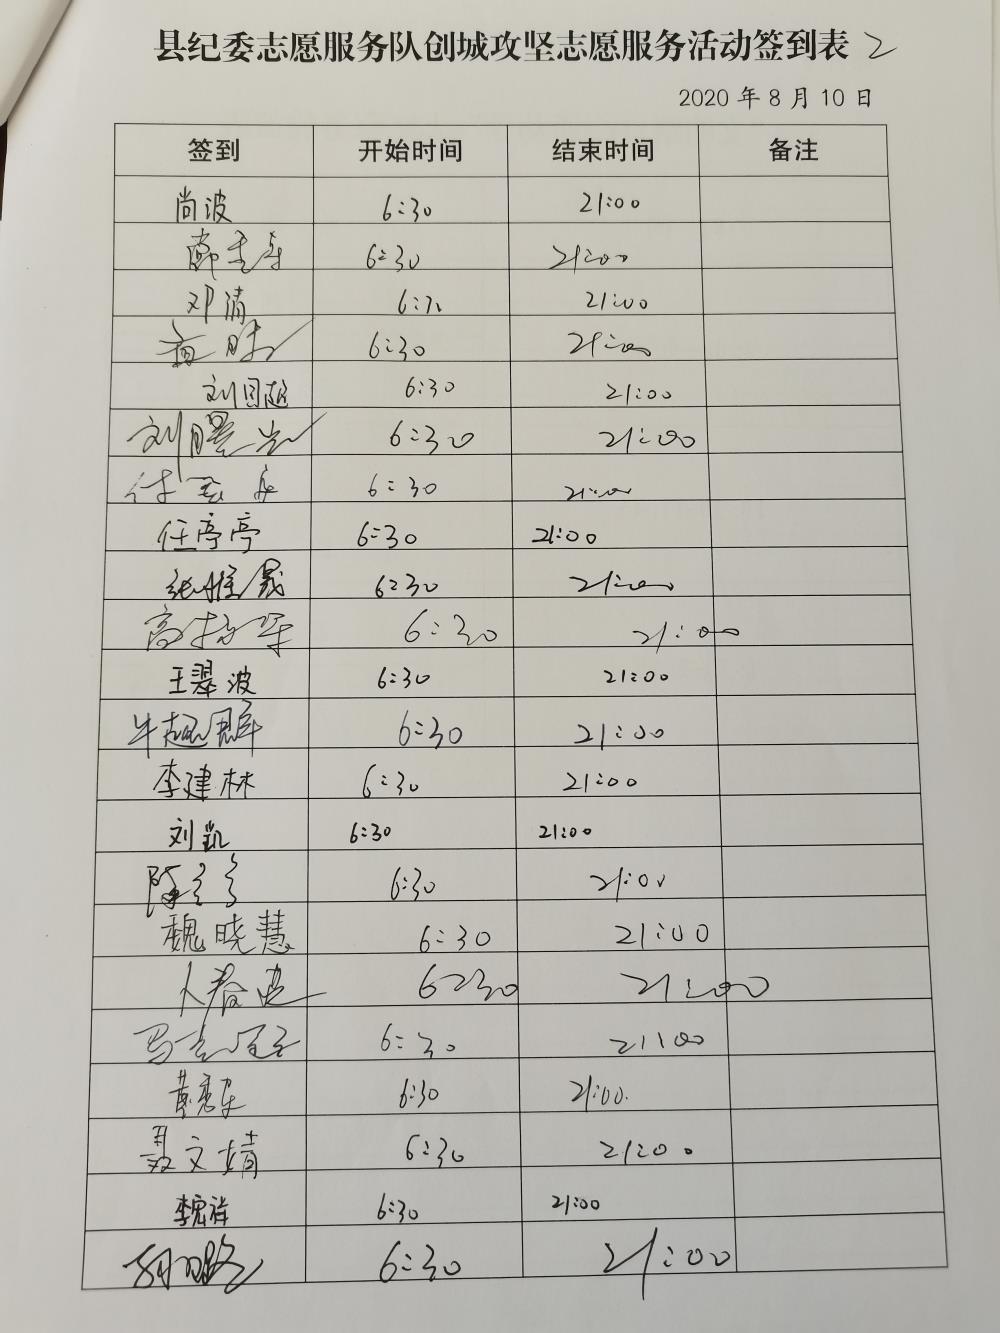 县纪委志愿服务队创城攻坚志愿服务活动签到表 2
2020 年 8 月 10 日
签到 开始时间 结束时间 备注
尚波 6:30 21:00
6:30 21:00
邓清 6:30 21:00
6:30 21:00
刘国超 6:30 21:00
刘曙光 6:30 21:00
付 6:30 21:00
任亭亭 6:30 21:00
张雅晟 6:30 21:00
高 6:30 21:00
王翠波 6:30 21:00
牛超群 6:30 21:00
李建林 6:30 21:00
刘凯 6:30 21:00
陈 6:30 21:00
魏晓慧 6:30 21:00
6:30 21:00
马 6:30 21:00
黄 6:30 21:00
聂文婧 6:30 21:00
李宏祥 6:30 21:00
6:30 21:00